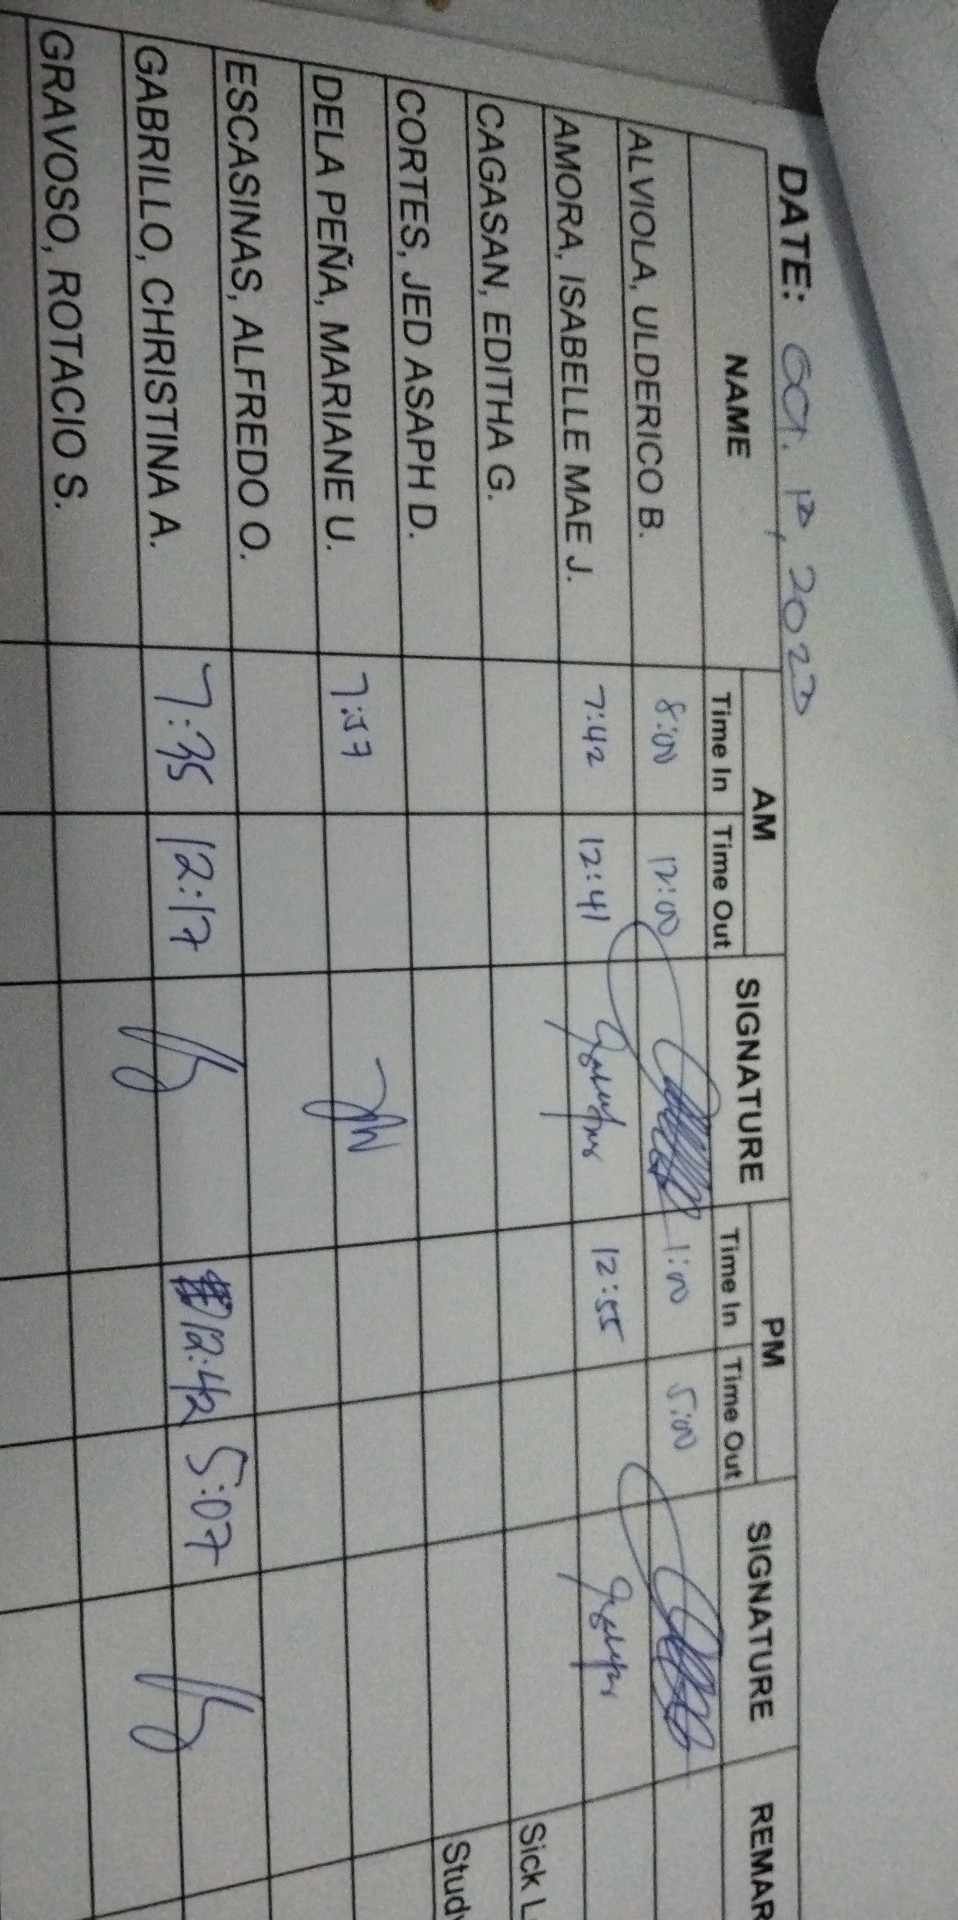 DATE: Oct. 12, 2023
NAME AM SIGNATURE PM SIGNATURE REMAR
Time In Time Out Time In Time Out
ALVIOLA, ULDERICO B. 8:00 12:00 1:00 5:00
AMORA, ISABELLE MAE J. 7:42 12:41 12:55
CAGASAN, EDITHA G. Sick L
CORTES, JED ASAPH D. Study
DELA PEÑA, MARIANE U. 7:57
ESCASINAS, ALFREDO O.
GABRILLO, CHRISTINA A. 7:35 12:17 12:42 5:07
GRAVOSO, ROTACIO S.